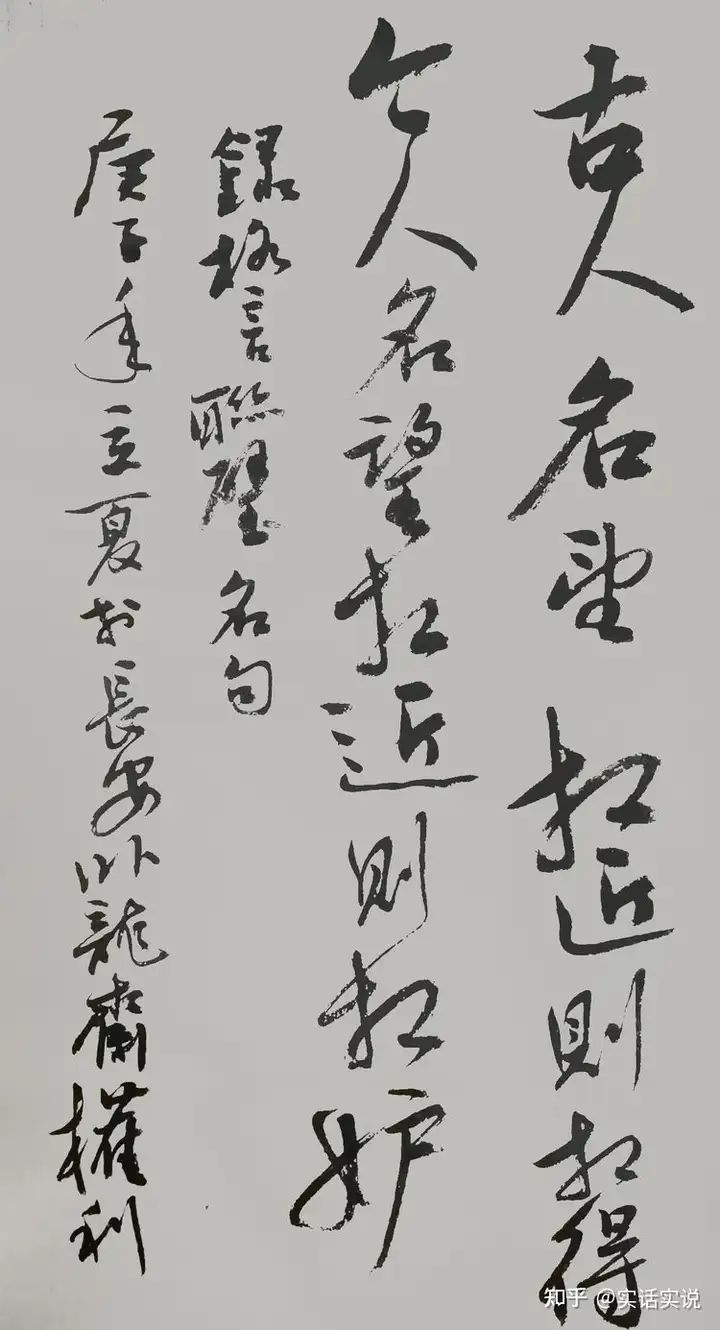 古人名望相近則相得
今人名望相近則相妒
錄格言聯璧名句
庚子年立夏於長安臥龍齋權利
知乎 @实话实说